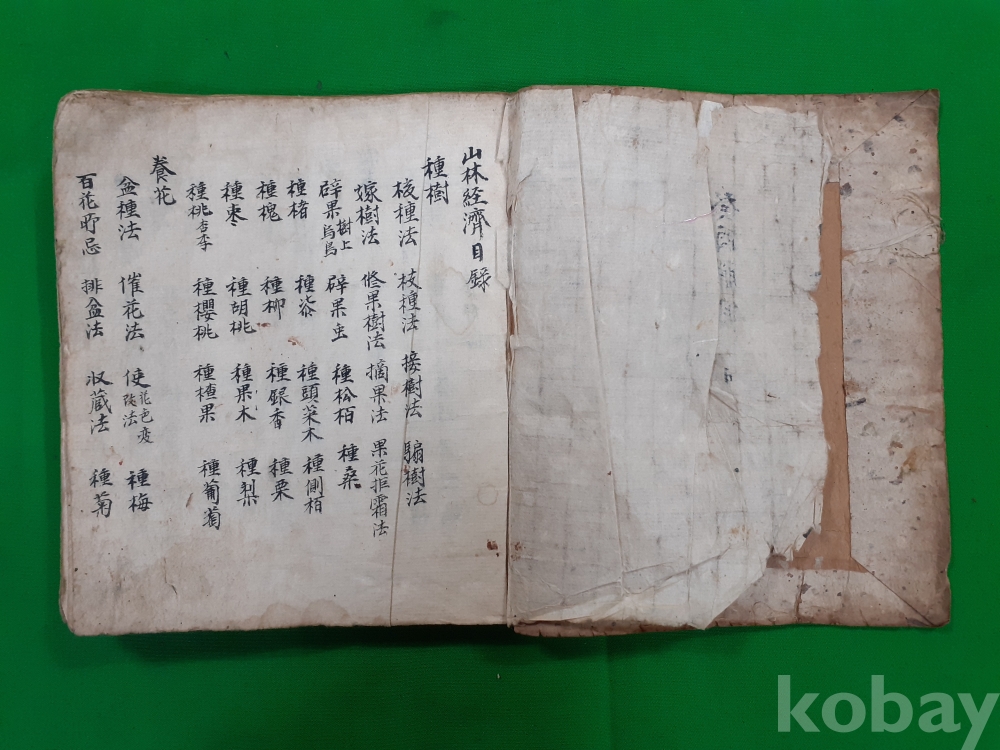 山林経濟目録
種樹
核種法 枝種法 接樹法 騸樹法
嫁樹法 修果樹法 摘果法 果花拒霜法
辟果樹上烏鳥 辟果虫 種松栢 種桑
種楮 種柒 種頭菜木 種側栢
種槐 種柳 種銀杏 種栗
種枣 種胡桃 種果木 種梨
種桃杏李 種櫻桃 種樝果 種葡萄
養花
盆種法 催花法 使花色変 法 種梅
百花所忌 排盆法 収蔵法 種菊
kobay